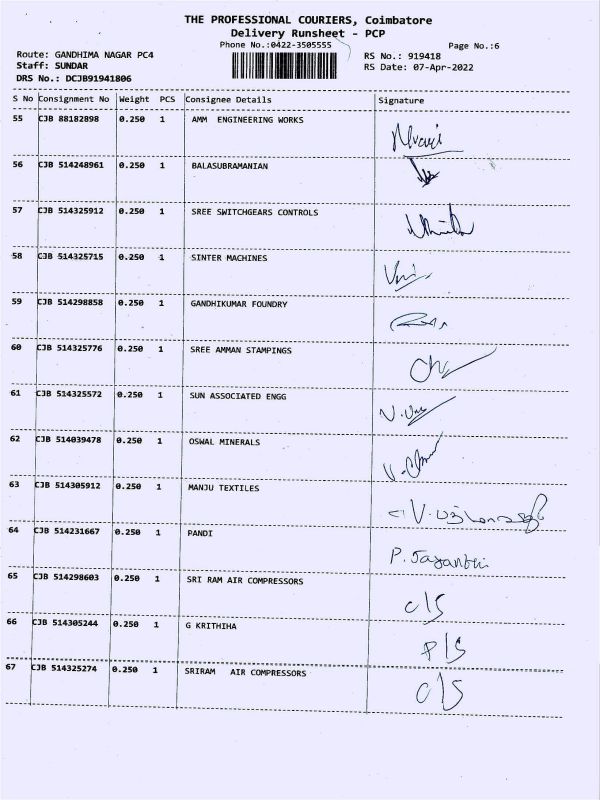 THE PROFESSIONAL COURIERS, Coimbatore
Delivery Runsheet - PCP
Phone No.:0422-3505555
Page No.:6
Route: GANDHIMA NAGAR PC4
RS No.: 919418
Staff: SUNDAR
RS Date: 07-Apr-2022
DRS No.: DCJB91941806
S No Consignment No Weight PCS Consignee Details Signature
55 CJB 88182898 0.250 1 AMM ENGINEERING WORKS
56 CJB 514248961 0.250 1 BALASUBRAMANIAN
57 CJB 514325912 0.250 1 SREE SWITCHGEARS CONTROLS
58 CJB 514325715 0.250 1 SINTER MACHINES
59 CJB 514298858 0.250 1 GANDHIKUMAR FOUNDRY
60 CJB 514325776 0.250 1 SREE AMMAN STAMPINGS
61 CJB 514325572 0.250 1 SUN ASSOCIATED ENGG
62 CJB 514039478 0.250 1 OSWAL MINERALS
63 CJB 514305912 0.250 1 MANJU TEXTILES
64 CJB 514231667 0.250 1 PANDI P. Jayanthi
65 CJB 514298603 0.250 1 SRI RAM AIR COMPRESSORS c/s
66 CJB 514305244 0.250 1 G KRITHIHA P/S
67 CJB 514325274 0.250 1 SRIRAM AIR COMPRESSORS c/s